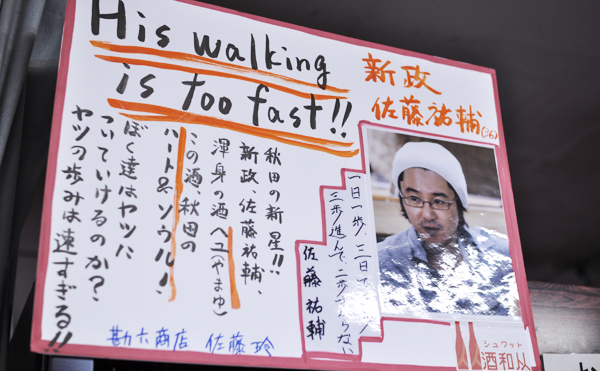 His walking
is too fast!!
新政
佐藤祐輔(36)
秋田の新星!!
新政、佐藤祐輔、
渾身の酒ヘユ(やまゆ)
この酒、秋田の
ハート&ソウル!
ぼく達はヤツに
ついていけるのか?
ヤツの歩みは速すぎる!!
一日一歩、三日で
三歩進んで、二歩下がらない
佐藤祐輔
勘六商店 佐藤玲
シュワット
酒和从